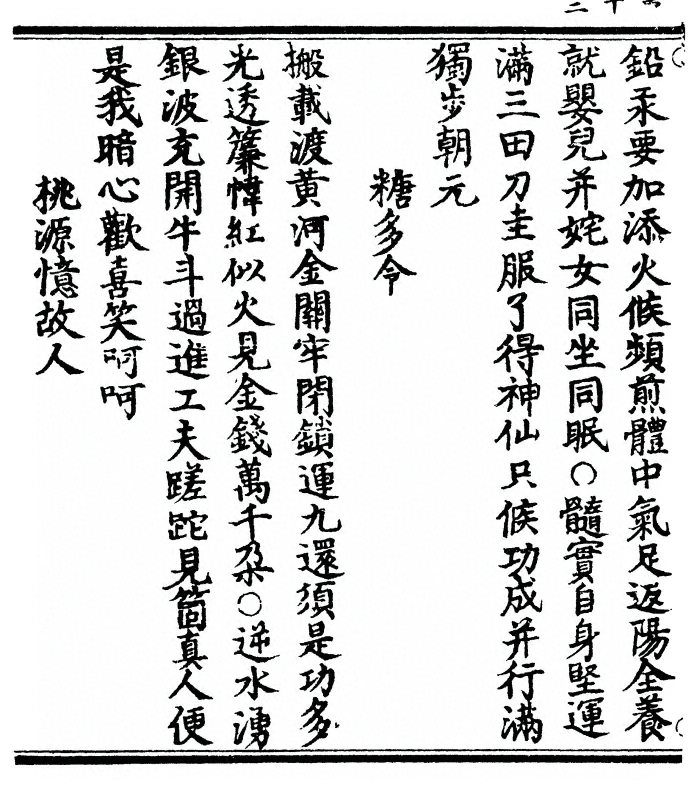 鉛汞要加添火候頻煎體中氣足返陽全養
就嬰兒并姹女同坐同眠○髓實自身堅運
滿三田刀圭服了得神仙只候功成并行滿
獨步朝元
糖多令
搬載渡黃河金關牢閉鎖運九還須是功多
光透簾幃紅似火見金錢萬千朵○逆水湧
銀波充開牛斗過進工夫蹉跎見箇真人便
是我暗心歡喜笑呵呵
桃源憶故人